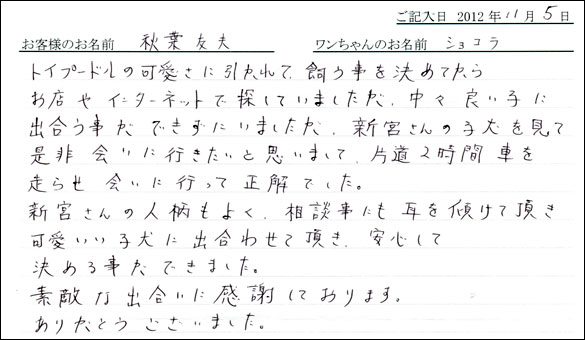 ご記入日 2012年11月5日
お客様のお名前 秋葉友夫 ワンちゃんのお名前 ショコラ
トイプードルの可愛さに引かれて、飼う事を決めてから
お店やインターネットで探していましたが、中々良い子に
出合う事ができずにいましたが、新宮さんの子犬を見て
是非会いに行きたいと思いまして、片道2時間車を
走らせ会いに行って正解でした。
新宮さんの人柄もよく、相談事にも耳を傾けて頂き
可愛いい子犬に出合わせて頂き、安心して
決める事ができました。
素敵な出合いに感謝しております。
ありがとうございました。